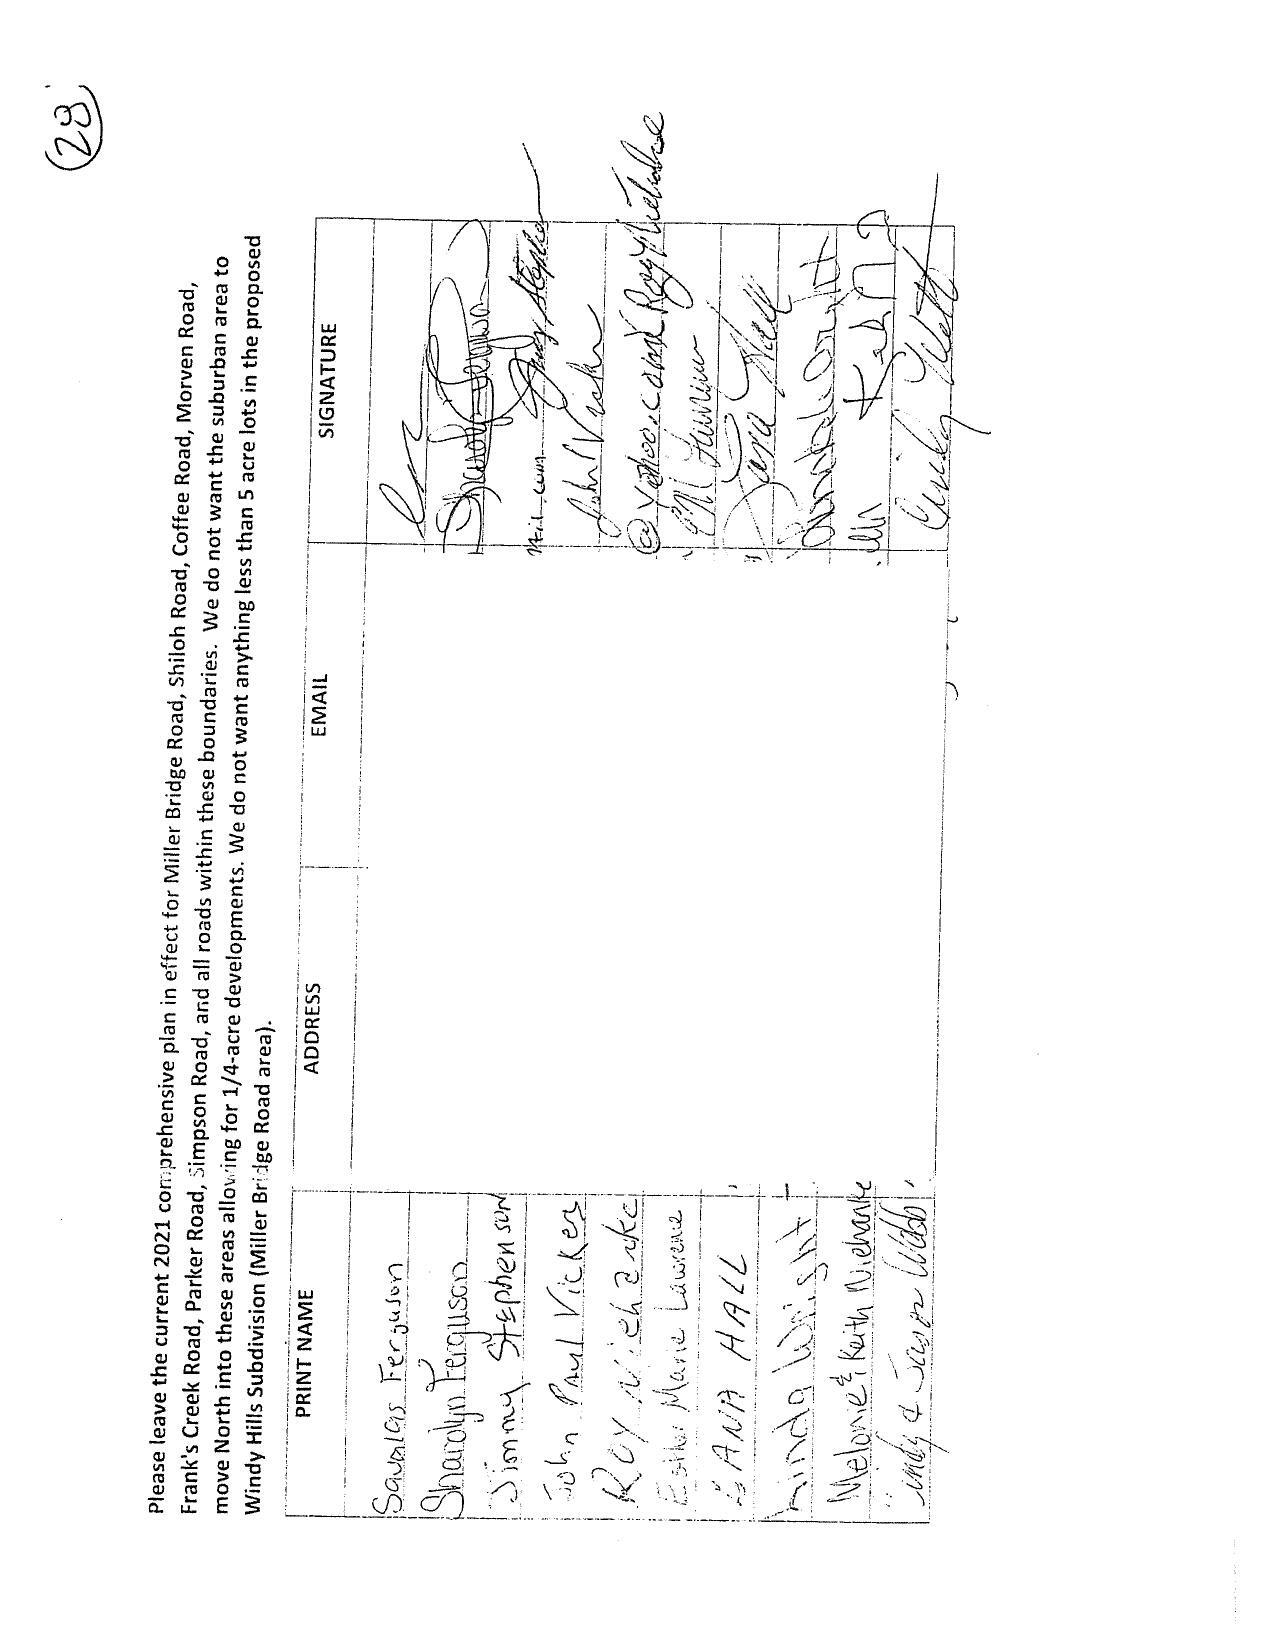 28
Please leave the current 2021 comprehensive plan in effect for Miller Bridge Road, Shiloh Road, Coffee Road, Morven Road,
Frank's Creek Road, Parker Road, Simpson Road, and all roads within these boundaries. We do not want the suburban area to
move North into these areas allowing for 1/4-acre developments. We do not want anything less than 5 acre lots in the proposed
Windy Hills Subdivision (Miller Bridge Road area).
PRINT NAME ADDRESS EMAIL SIGNATURE
Savalas Ferguson
Sharolyn Ferguson Sharolyn Ferguson
Jimmy Stephenson Jimmy Stephen
John Paul Vickers John Vick
Roy Niehanke @yahoo.com Roy Niehanke
Esther Marie Lawrence
DANA HALL Dana Hall
Linda Wright Linda Wright
Melonie & Keith Niehanke
Cindy & Jason Webb Cindy Webb